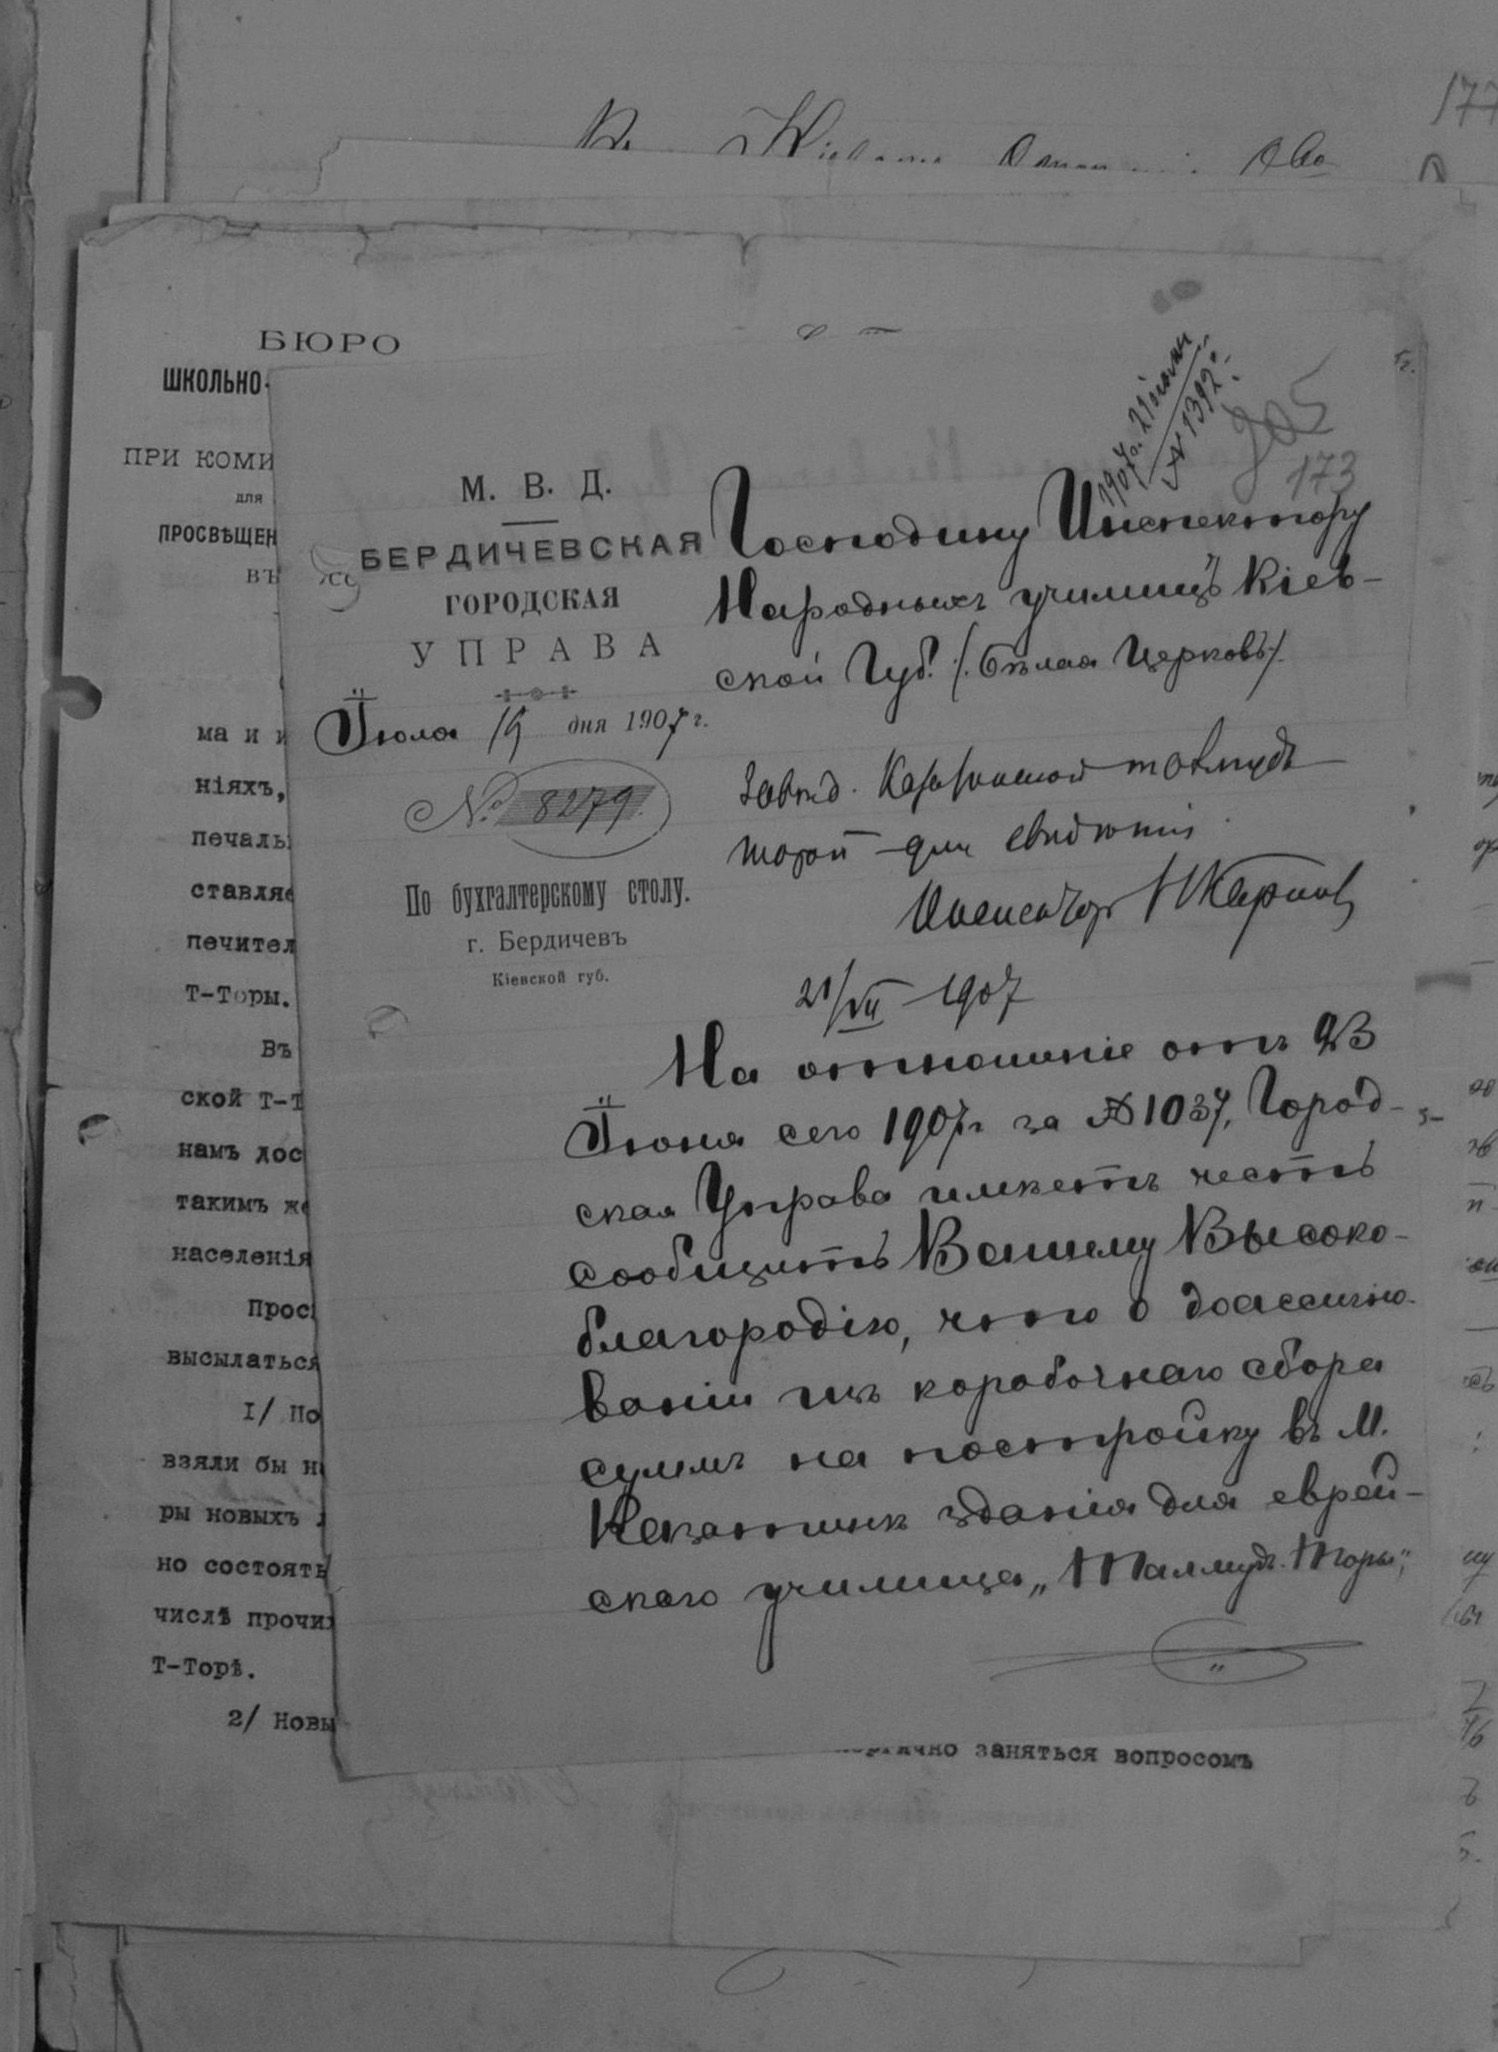 177
БЮРО
ШКОЛЬНО-
ПРИ КОМИ
для
ПРОСВѢЩЕН
ВЪ
ма и и
ніяхъ,
печаль
ставляе
печител
Т-Торы.
Въ
ской Т-Т
намъ дос
такимъ же
населенія
Прос
высылаться
I/ По
взяли бы н
ры новыхъ
но состоять
числѣ прочи
Т-Торѣ.
2/ Новы
1907 г. 21 іюля
№ 1392
205
173
М. В. Д.
БЕРДИЧЕВСКАЯ
ГОРОДСКАЯ
УПРАВА
Іюля 19 дня 1907 г.
№ 8279.
По бухгалтерскому столу.
г. Бердичевъ
Кіевской губ.
Господину Инспектору
Народныхъ училищъ Кіев-
ской Губ. /. Бѣлая Церковь/.
Завѣд. талмудъ
торой для свѣдѣнія
Инспекторъ
21/VII 1907
На отношеніе отъ 23
Іюня сего 1907 г. за № 1037, Город-
ская Управа имѣетъ честь
сообщить Вашему Высоко-
благородію, что о доассигно-
ваніи изъ коробочнаго сбора
суммъ на постройку въ М.
Казатинѣ зданія для еврей-
скаго училища „Талмудъ-Торы“,
заняться вопросомъ